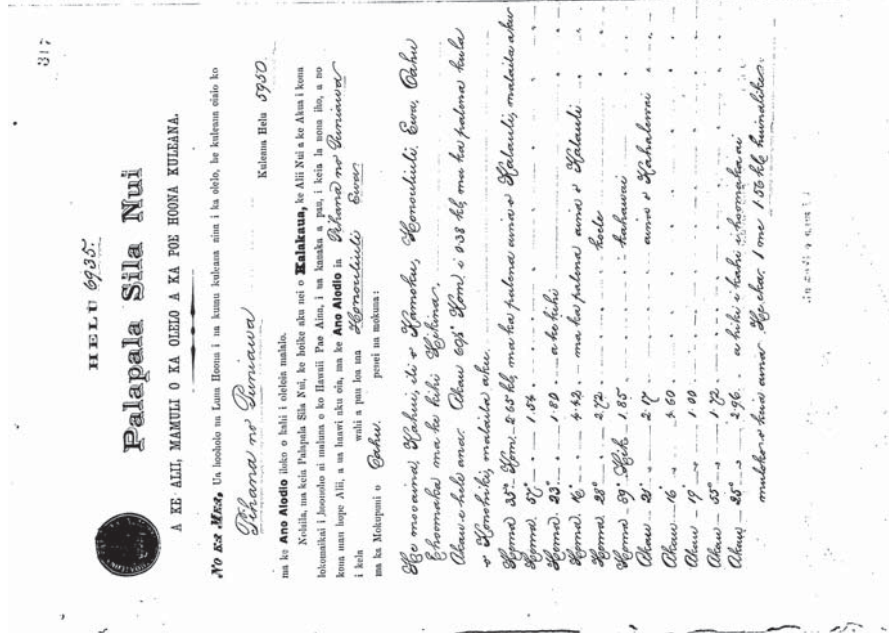 317
HELU 6935.
Palapala Sila Nui
A KE ALII, MAMULI O KA OLELO A KA POE HOONA KULEANA.
No ka Mea, Ua hooholo na Luna Hoona i na kumu kuleana aina i ka olelo, he kuleana oiaio ko
Pihana no Puniawa Kuleana Helu 5950.
ma ke Ano Alodio iloko o kahi i oleloia malalo.
Nolaila, ma keia Palapala Sila Nui, ke hoike aku nei o Kalakaua, ke Alii Nui a ke Akua i kona
lokomaikai i hoonoho ai maluna o ko Hawaii Pae Aina, i na kanaka a pau, i keia la nona iho, a no
kona mau hope Alii, a ua haawi aku oia, ma ke Ano Alodio ia Pihana no Puniawa
i kela wahi a pau loa ma Honouliuli Ewa
ma ka Mokupuni o Oahu. penei na mokuna:
He mooaina Kahui, ili o Kamoku, Honouliuli, Ewa, Oahu
Ehoomaka ma ke kihi Hikina
Akau e holo ana. Akau Kom. i 0.38 kh, ma ka palena kula
o Konohiki, malaila aku.
Hema 35° Kom 2.65 kh, ma ka palena aina o Kalauli, malaila aku
Hema 57° " 1.54
Hema 23° " 1.80 a ke kihi
Hema 16° " 4.42 ma ka palena aina o Kalauli
Hema 28° " 2.72 koele
Hema 89° Hik 1.85 kahawai
Akau 21° " 2.17 aina o Kahalewai
Akau 16° " 4.60
Akau 19° " 1.00
Akau 55° " 1.72
Akau 25° " 2.96 a hiki i kahi i hoomaka ai
maloko o keia aina Hoeka. 1 me 1.56 kh kuinalike.